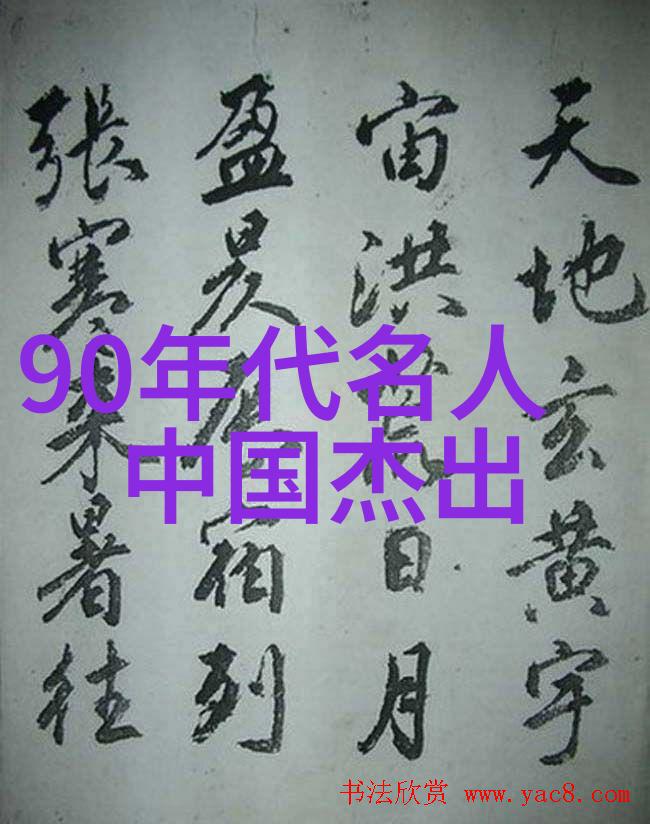 天地玄黄宇
宙洪荒日月
盈昃辰宿列
張寒来暑往
90年代名人
中国杰出
书法欣赏 www.yac8.com